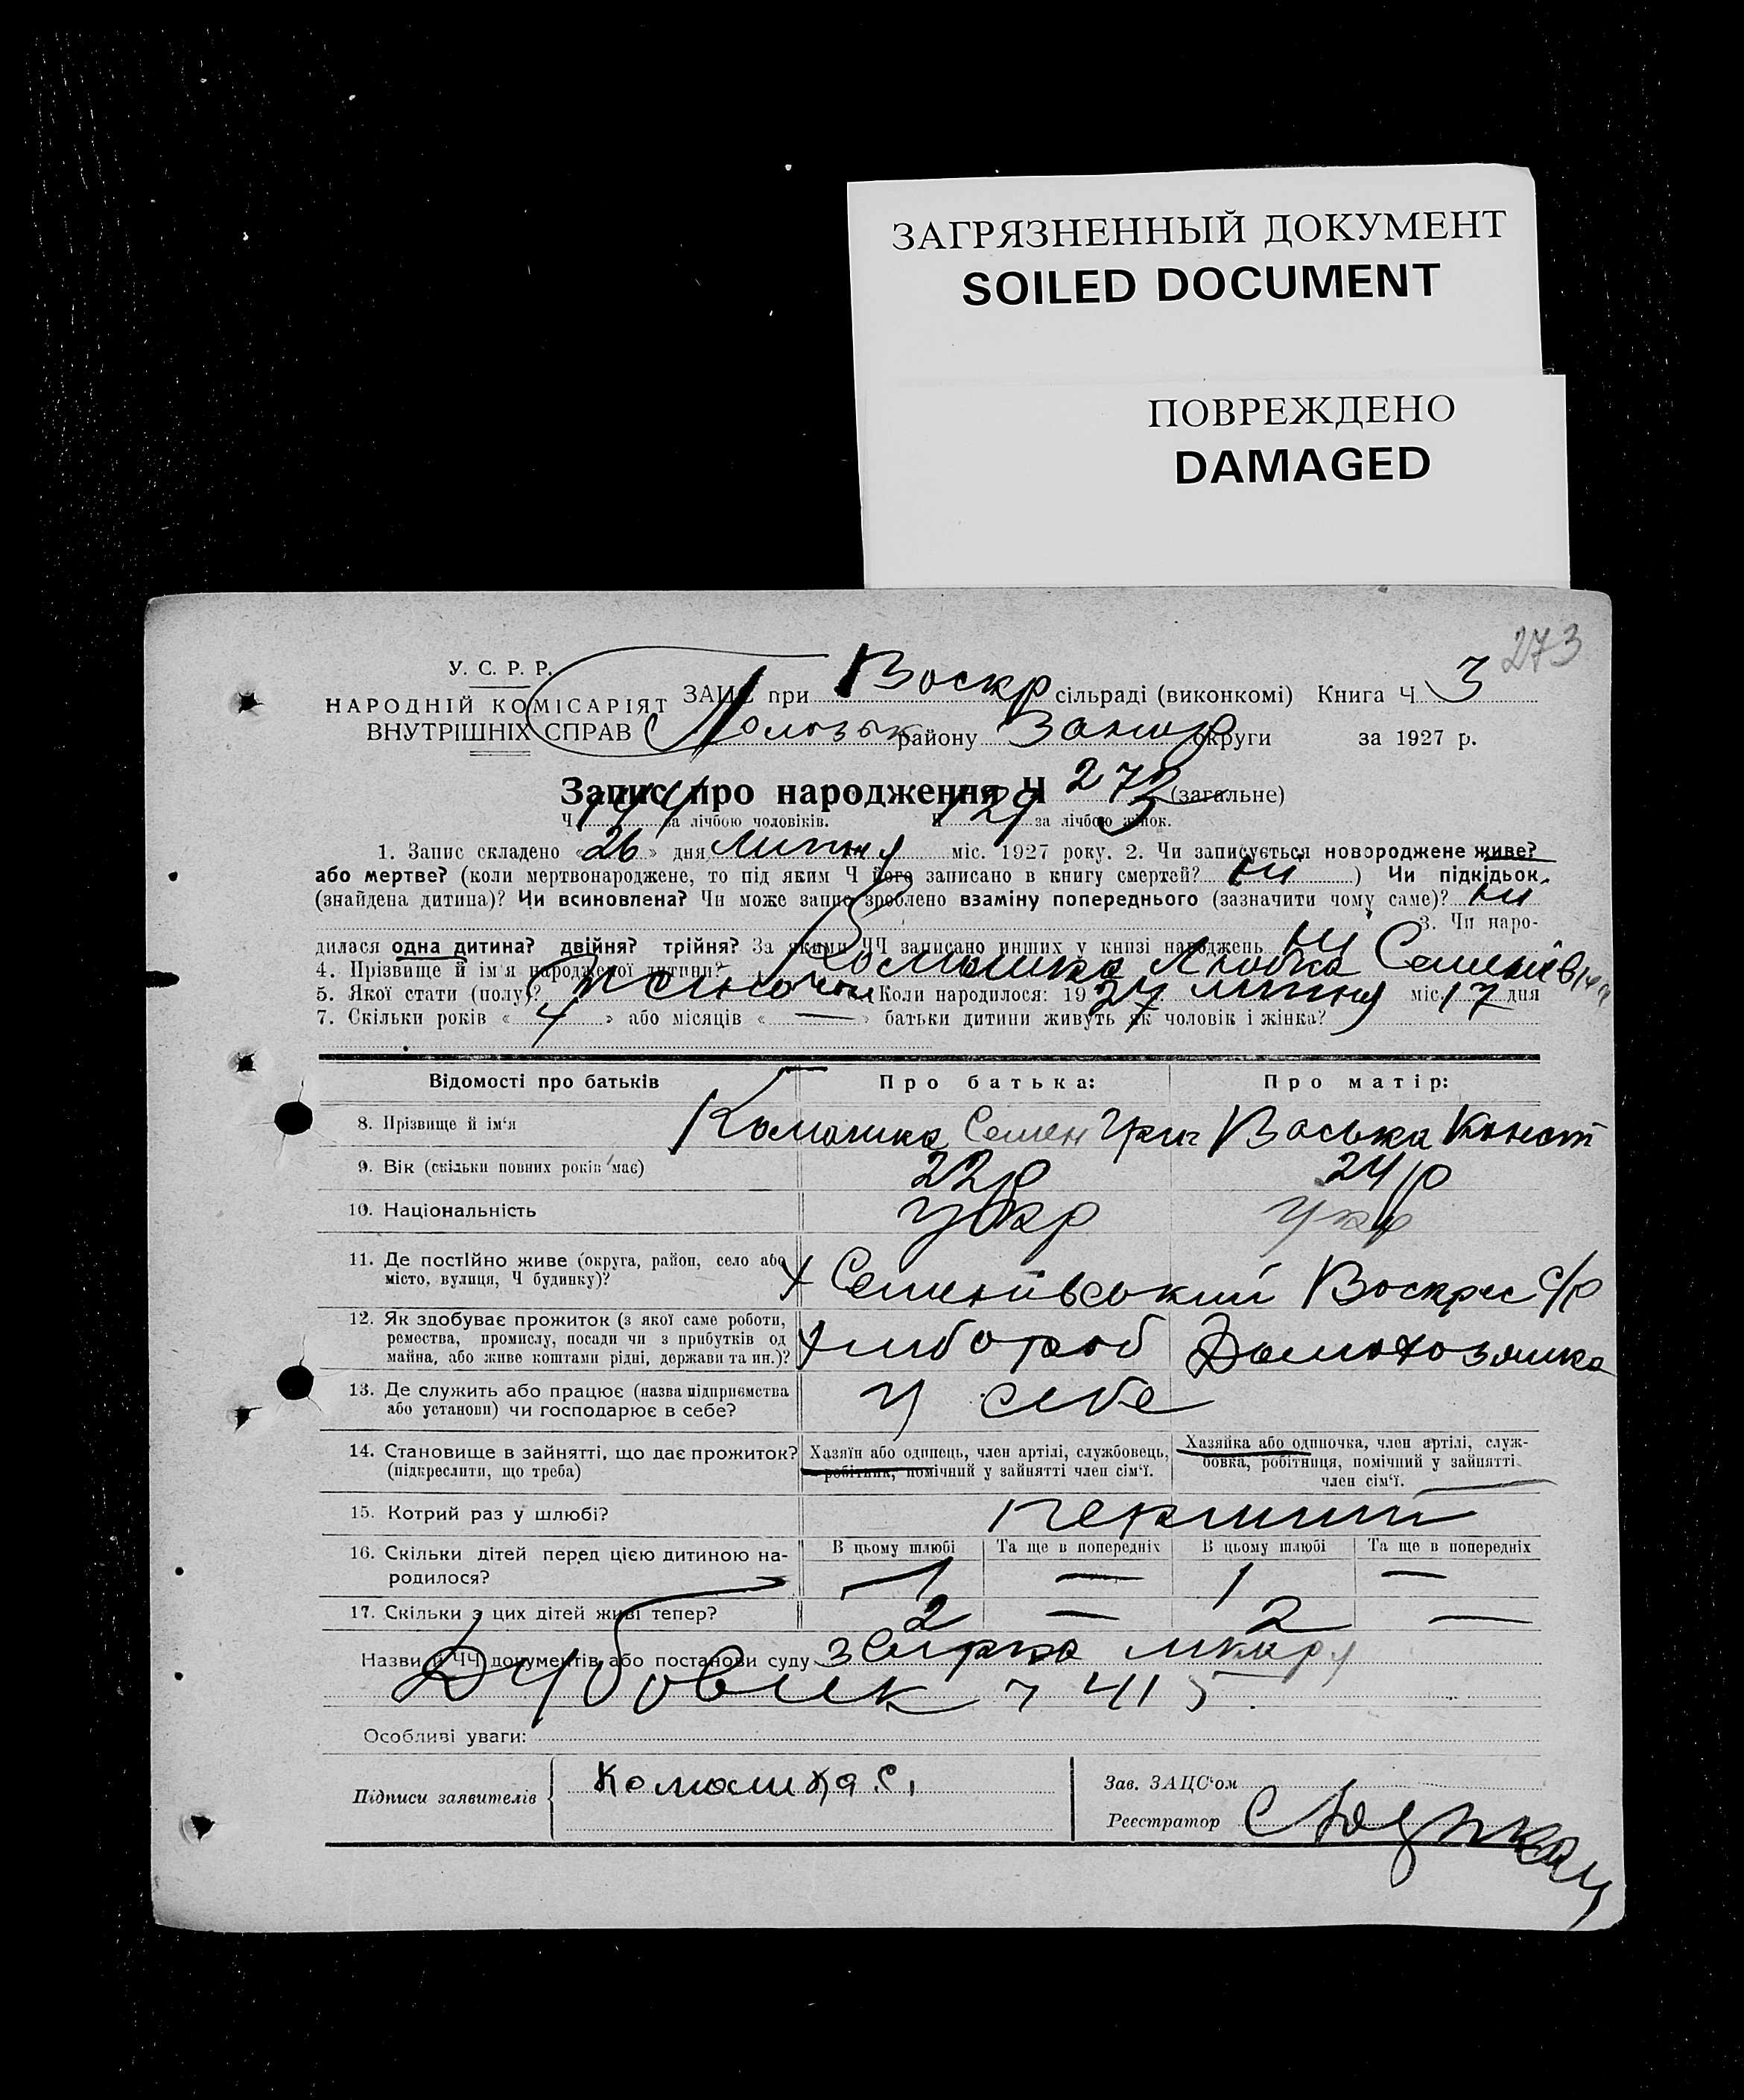 ЗАГРЯЗНЕННЫЙ ДОКУМЕНТ
SOILED DOCUMENT
ПОВРЕЖДЕНО
DAMAGED
273
У. С. Р. Р.
НАРОДНІЙ КОМІСАРІЯТ
ВНУТРІШНІХ СПРАВ
ЗАЦС при Воскр сільраді (виконкомі) Книга Ч 3
району округи за 1927 р.
Запис про народження Ч 273 (загальне)
Ч 144 за лічбою чоловіків. Ч 129 за лічбою жінок.
1. Запис складено «26» дня липня міс. 1927 року. 2. Чи записується новороджене живе?
або мертве? (коли мертвонароджене, то під яким Ч його записано в книгу смертей? ні ) Чи підкідьок
(знайдена дитина)? Чи всиновлена? Чи може запис зроблено взаміну попереднього (зазначити чому саме)? ні
3. Чи наро-
дилася одна дитина? двійня? трійня? За якими ЧЧ записано инших у книзі народжень ні
4. Прізвище й ім'я народженої дитини? Комашка Любка Семенівна
5. Якої стати (полу)? Жіночої Коли народилося: 1927 липня міс 17 дня
7. Скільки років « 4 » або місяців « — » батьки дитини живуть як чоловік і жінка?
Відомості про батьків Про батька: Про матір:
8. Прізвище й ім'я Комашка Семен Григ Васька Конст
9. Вік (скільки повних років має) 22 р 24 р
10. Національність Укр Укр
11. Де постійно живе (округа, район, село або
місто, вулиця, Ч будинку)? х Семенівський Воскрес с/р
12. Як здобуває прожиток (з якої саме роботи,
ремества, промислу, посади чи з прибутків од
майна, або живе коштами рідні, держави та ин.)? Хлібороб Домохозяшка
13. Де служить або працює (назва підприємства
або установи) чи господарює в себе? У себе
14. Становище в зайнятті, що дає прожиток?
(підкреслити, що треба)
Хазяїн або одинець, член артілі, службовець,
робітник, помічний у зайнятті член сім'ї.
Хазяйка або одиночка, член артілі, служ-
бовка, робітниця, помічний у зайнятті
член сім'ї.
15. Котрий раз у шлюбі? перший
16. Скільки дітей перед цією дитиною на-
родилося?
В цьому шлюбі Та ще в попередніх В цьому шлюбі Та ще в попередніх
1 — 1 —
17. Скільки з цих дітей живі тепер? 2 — 2 —
Назви й ЧЧ документів або постанови суду
Дубовик 415
Особливі уваги:
Підписи заявителів Комашка С.
Зав. ЗАЦС'ом
Реєстратор